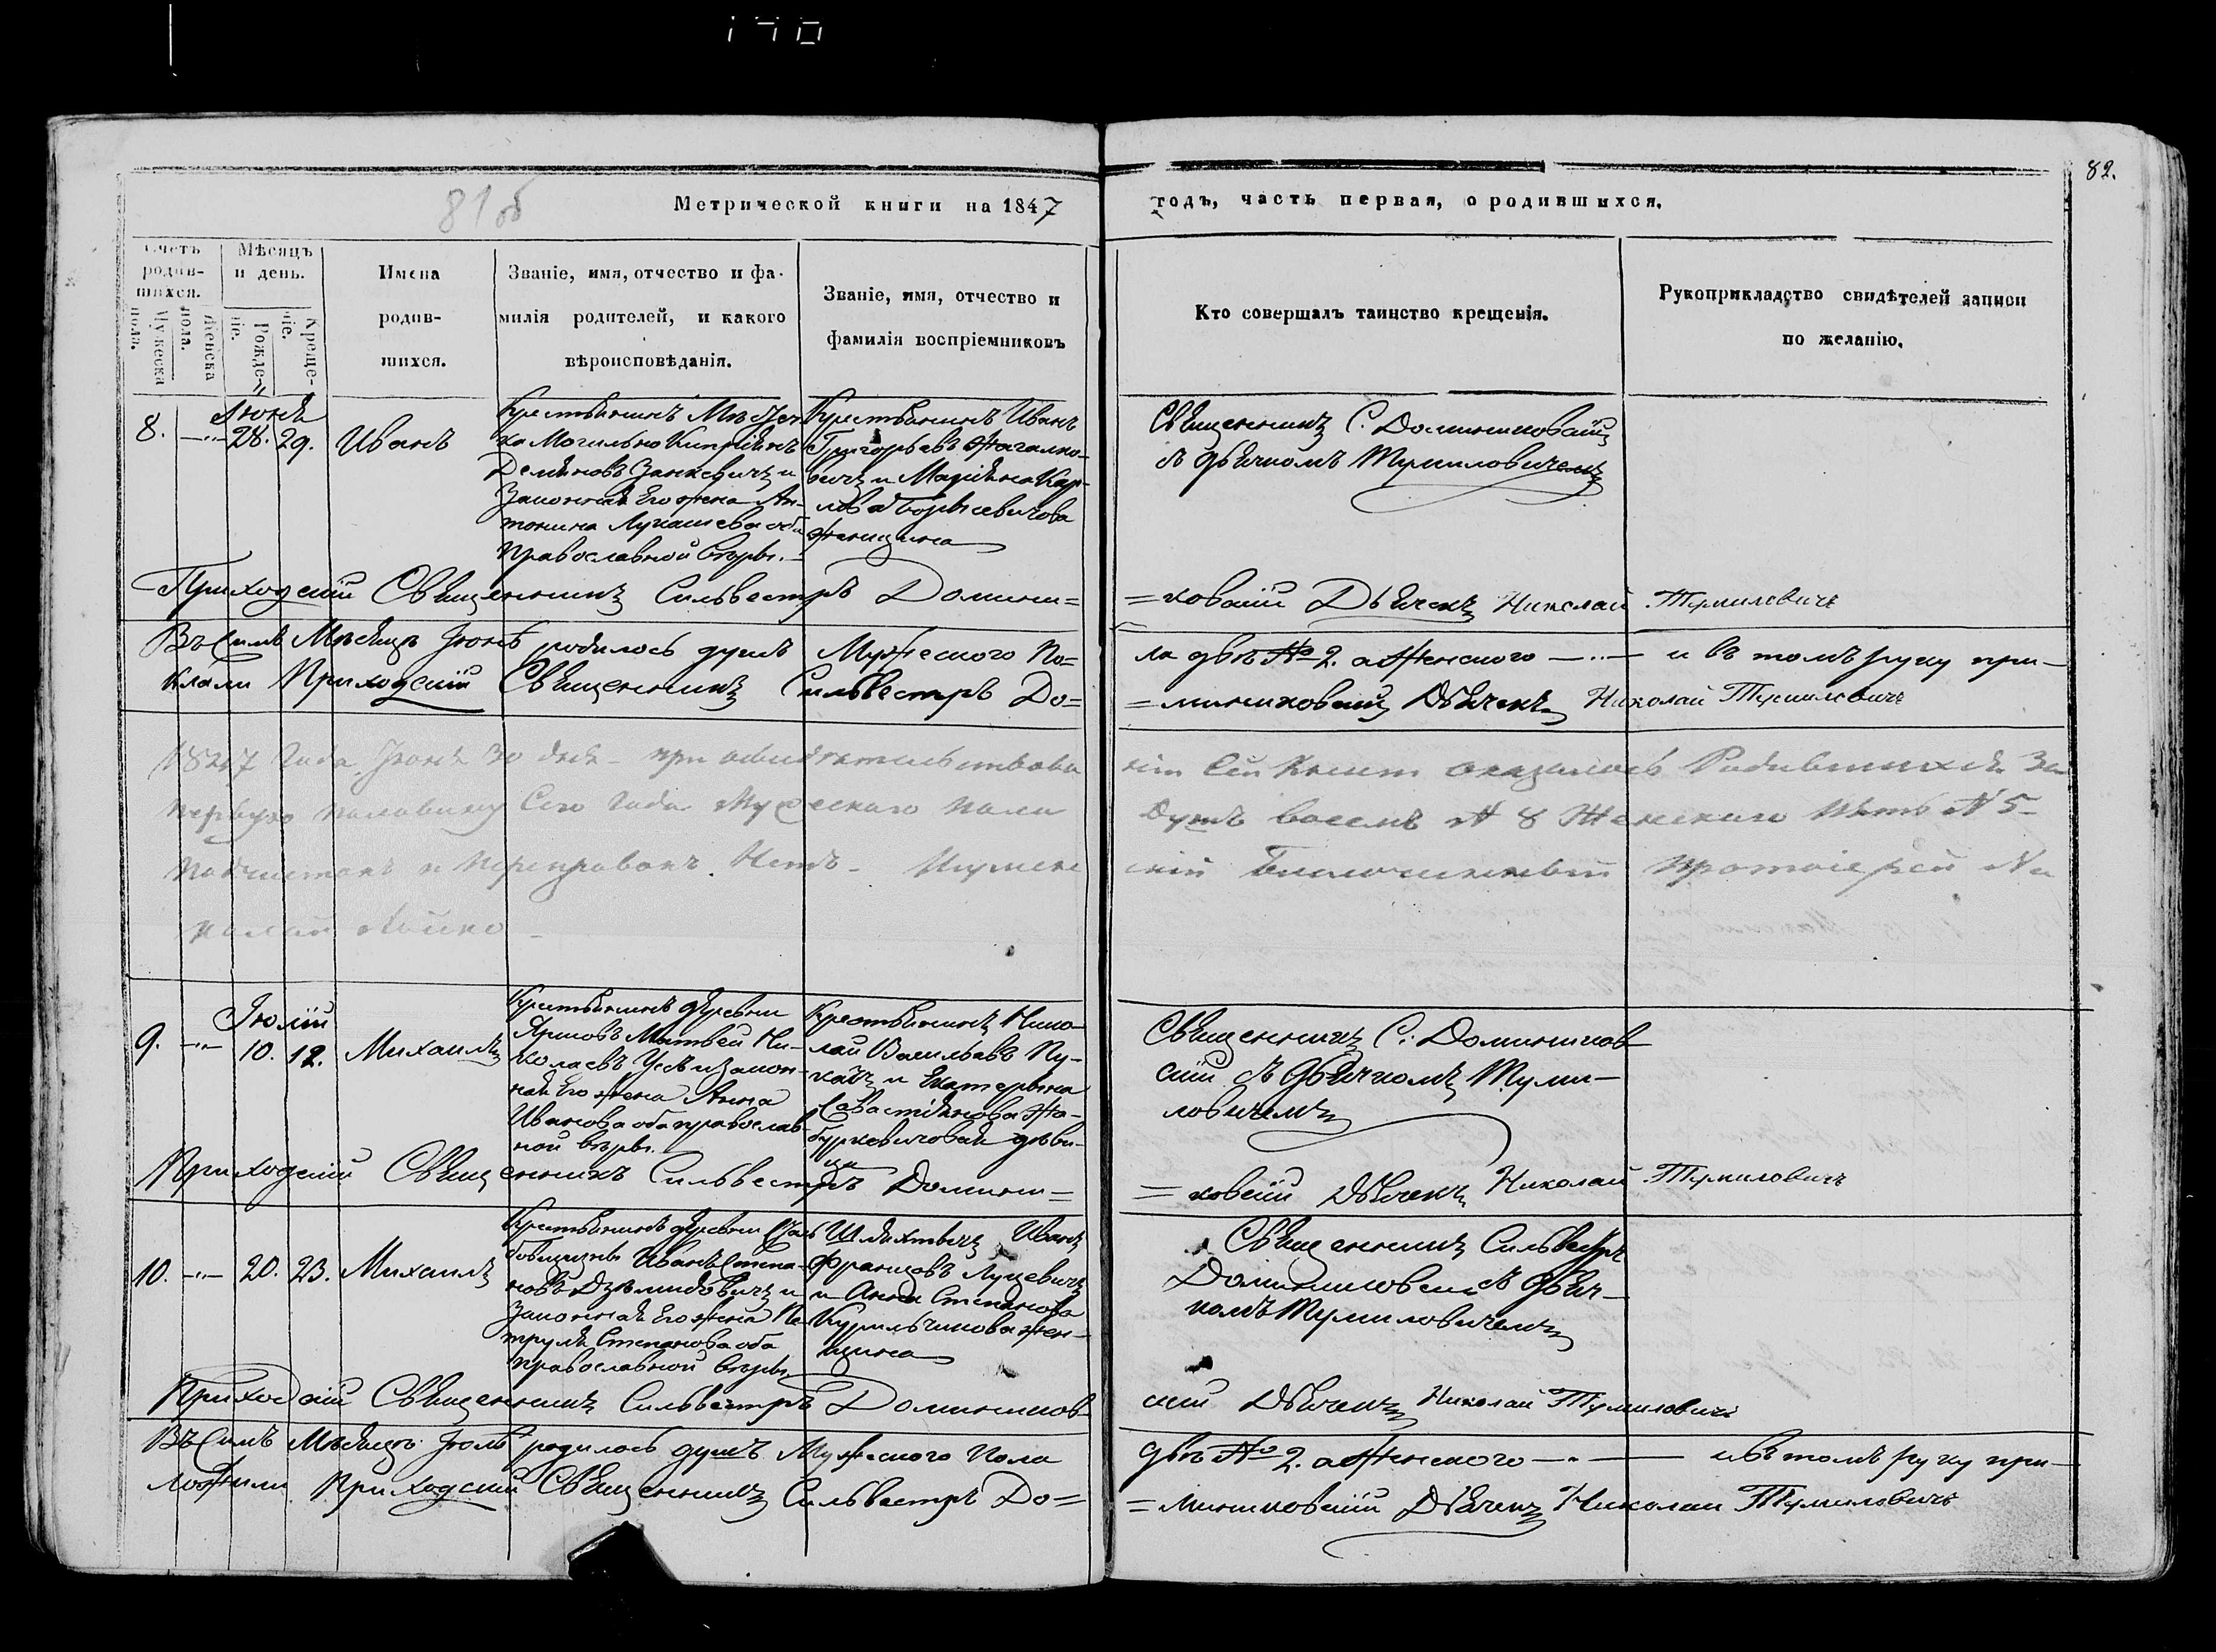 82.
81 об
Метрической книги на 1847
годъ, часть первая, о родившихся.
Счетъ родив-шихся.
Мужеска пола.
Женска пола.
Мѣсяцъ и день.
Рожде-ніе.
Креще-ніе.
Имена
родив-
шихся.
Званіе, имя, отчество и фа-
милія родителей, и какого
вѣроисповѣданія.
Званіе, имя, отчество и
фамилія воспріемниковъ
Кто совершалъ таинство крещенія.
Рукоприкладство свидѣтелей записи
по желанію.
8.
28. 29.
Иванъ
Крестьянинъ Мѣстеч
ка Могильно Кипріянъ
Демяновъ Занкевичъ и
Законная Его жена Ан-
тонина Лукашева оба
Православной вѣры.
Крестьянинъ Иванъ
Григорьевъ
вичъ и Маріяна Кар-
лова Борисевичова
женщина
Священникъ С. Доминиковскій
съ дьячкомъ Тумиловичемъ
Приходскій Священникъ Сильвестръ Домини=
=ковскій Дьячекъ Николай Тумиловичъ
Въ Семъ Мѣсяцѣ Іюнѣ родилось душъ Мужеского По=
ла двѣ № 2. а Женского — и въ томъ руку при-
клали Приходскій Священникъ Сильвестръ До=
=миниковскій Дьячекъ Николай Тумиловичъ
1847 Года Іюня 30 дня при освидѣтельствова
ніи Сей Книги оказалось Родившихся За
первую половину Сего Года Мужескаго пола
Душъ восемь № 8 Женскаго пять № 5-
подчистокъ и переправокъ Нетъ- Игумен
скій Благочинный Протоіерей Ни
колай
9.
Іюлій
10. 12.
Михаилъ
Крестьянинъ деревни
Матвей Ни-
колаевъ Усъ и закон-
ная Его жена Анна
Иванова оба православ-
ной вѣры.
Крестьянинъ Нико-
лай Васильевъ Лу-
и Екатерына
Савастіянова Жа-
буркевичовая дѣви-
ца
Священникъ С. Домиников-
скій съ дьячкомъ Туми-
ловичемъ
Приходскій Священникъ Сильвестръ Домини=
=ковскій Дьячекъ Николай Тумиловичъ
10.
20. 23.
Михаилъ
Крестьянинъ деревни
Иванъ Степа-
новъ и
Законная Его жена Пе-
Степанова оба
православной вѣры
Шляхтичъ Иванъ
Францовъ Луцевичъ
и Анна Степанова
Курильчикова жен-
щина
Священникъ Сильвестръ
Доминиковскій съ дьяч-
комъ Тумиловичемъ
Приходскій Священникъ Сильвестръ Домиников-
скій Дьячекъ Николай Тумиловичъ
Въ Семъ Мѣсяцѣ Іюлѣ родилось душъ Мужеского Пола
двѣ № 2. а Женского — и въ томъ руку при-
ложили Приходскій Священникъ Сильвестръ До=
=миниковскій Дьячекъ Николай Тумиловичъ